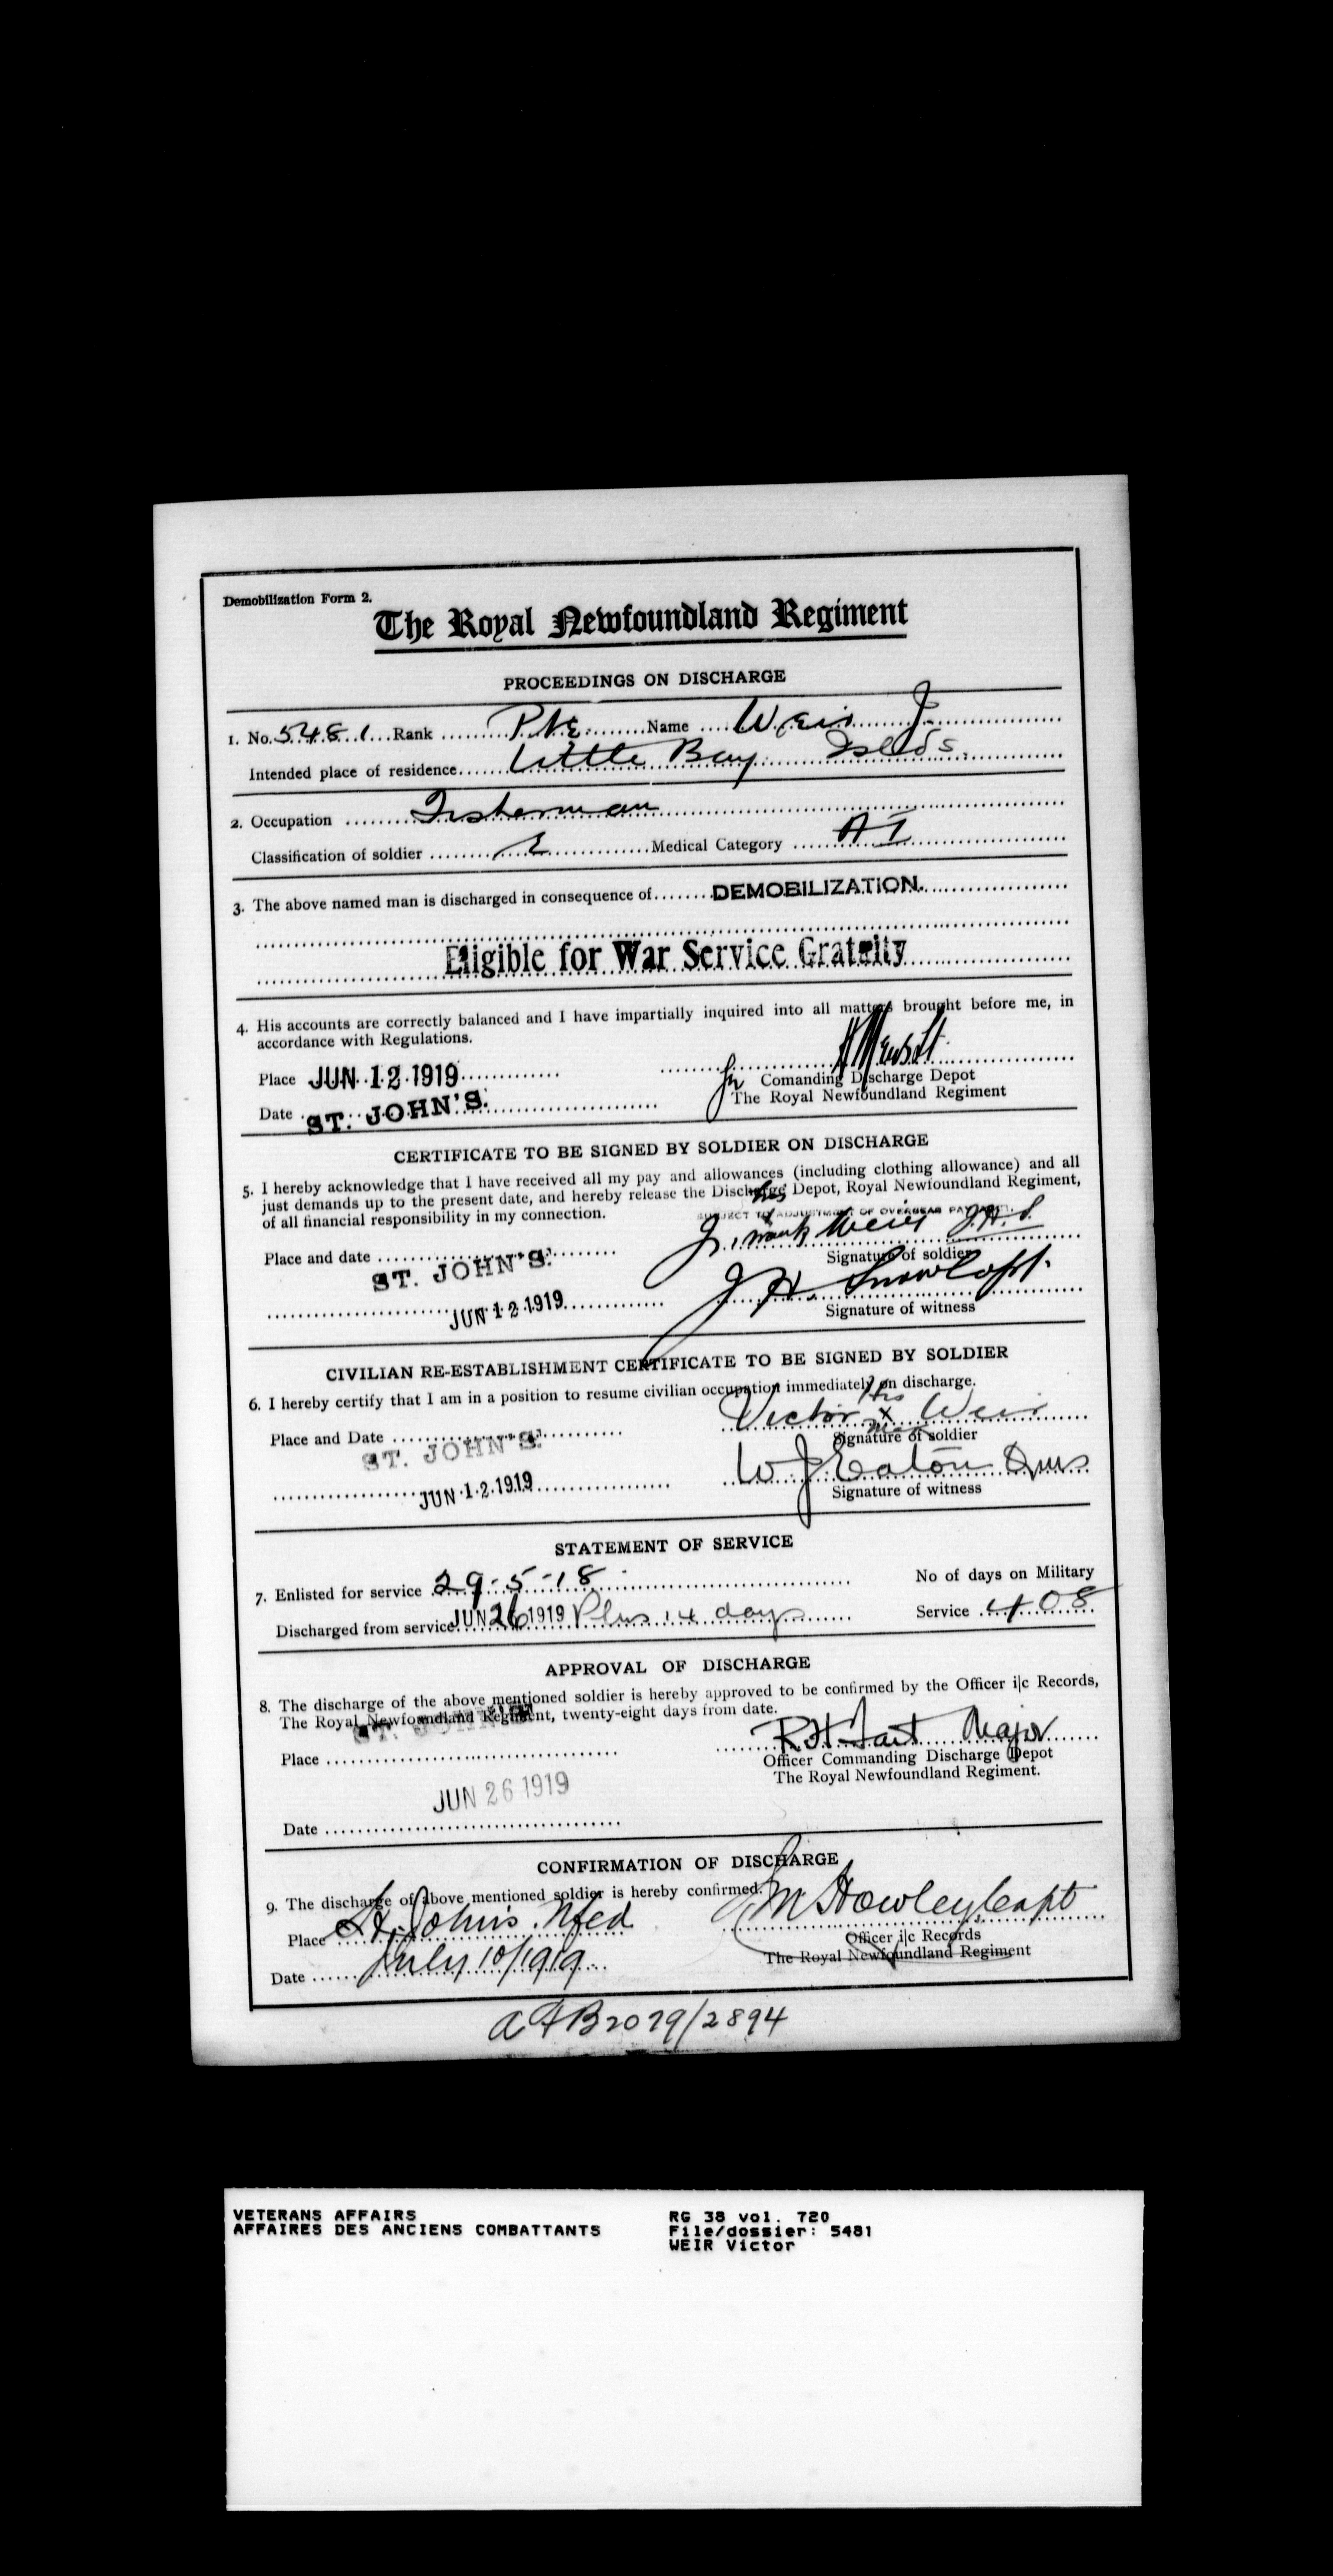 Demobilization Form 2.
The Royal Newfoundland Regiment
PROCEEDINGS ON DISCHARGE
1. No. 5481 Rank Pte Name Weir J.
Intended place of residence Little Bay Islds.
2. Occupation Fisherman
Classification of soldier E Medical Category A I
3. The above named man is discharged in consequence of DEMOBILIZATION.
Eligible for War Service Gratuity
4. His accounts are correctly balanced and I have impartially inquired into all matters brought before me, in
accordance with Regulations.
Place JUN 12 1919
for Comanding Discharge Depot
Date ST. JOHN'S.
The Royal Newfoundland Regiment
CERTIFICATE TO BE SIGNED BY SOLDIER ON DISCHARGE
5. I hereby acknowledge that I have received all my pay and allowances (including clothing allowance) and all
just demands up to the present date, and hereby release the Discharge Depot, Royal Newfoundland Regiment,
of all financial responsibility in my connection.
SUBJECT TO ADJUSTMENT OF OVERSEAS PAY
his
J. mark Weir J.H.S.
Place and date
ST. JOHN'S.
Signature of soldier
J H. Snowcroft.
JUN 12 1919
Signature of witness
CIVILIAN RE-ESTABLISHMENT CERTIFICATE TO BE SIGNED BY SOLDIER
6. I hereby certify that I am in a position to resume civilian occupation immediately on discharge.
his
Victor x Weir
mark
Place and Date
ST. JOHN'S.
Signature of soldier
W J Eaton
JUN 12 1919
Signature of witness
STATEMENT OF SERVICE
7. Enlisted for service 29-5-18 No of days on Military
Discharged from service JUN 26 1919 Plus 14 days Service 408
APPROVAL OF DISCHARGE
8. The discharge of the above mentioned soldier is hereby approved to be confirmed by the Officer i|c Records,
The Royal Newfoundland Regiment, twenty-eight days from date.
ST. JOHN'S
R H Tait Major
Place
Officer Commanding Discharge Depot
The Royal Newfoundland Regiment.
JUN 26 1919
Date
CONFIRMATION OF DISCHARGE
9. The discharge of above mentioned soldier is hereby confirmed.
M Howley Capt
Place St. John's Nfld
Officer i|c Records
The Royal Newfoundland Regiment
Date July 10/1919
AFB2079/2894
VETERANS AFFAIRS RG 38 vol. 720
AFFAIRES DES ANCIENS COMBATTANTS File/dossier: 5481
WEIR Victor